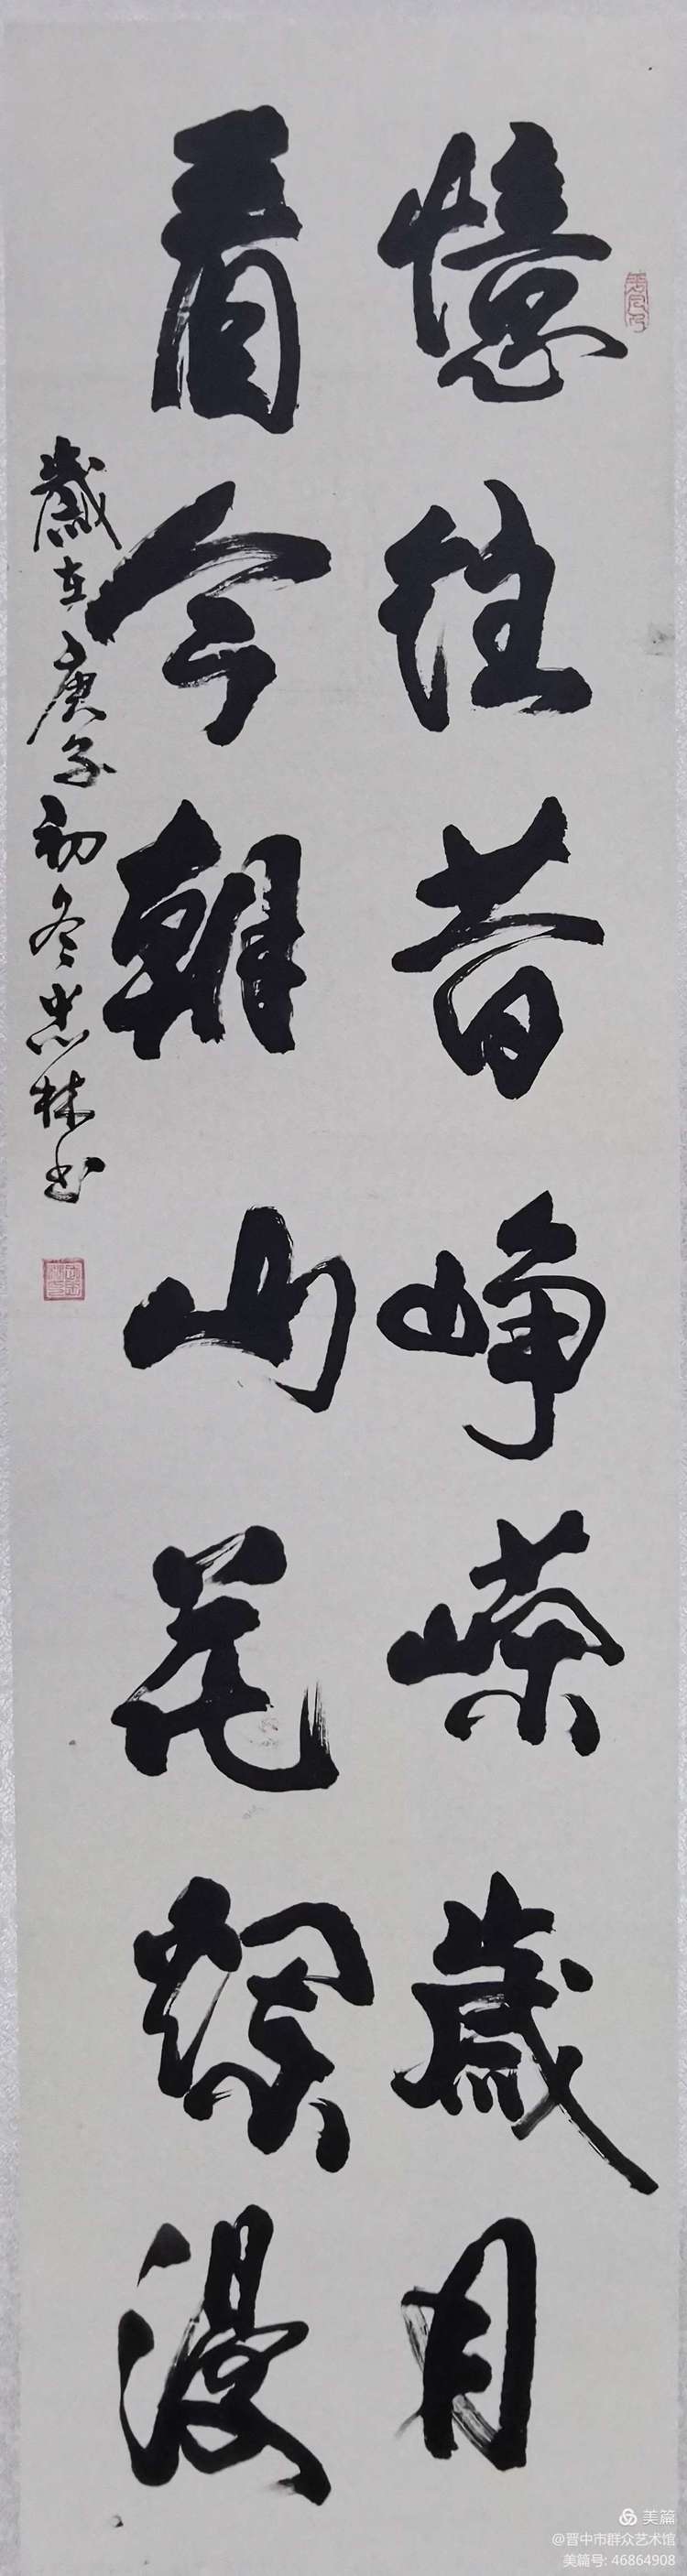 憶往昔崢嶸歲月
看今朝山花爛漫
歲在庚子初冬忠林书
美篇
@晋中市群众艺术馆
美篇号: 46864908